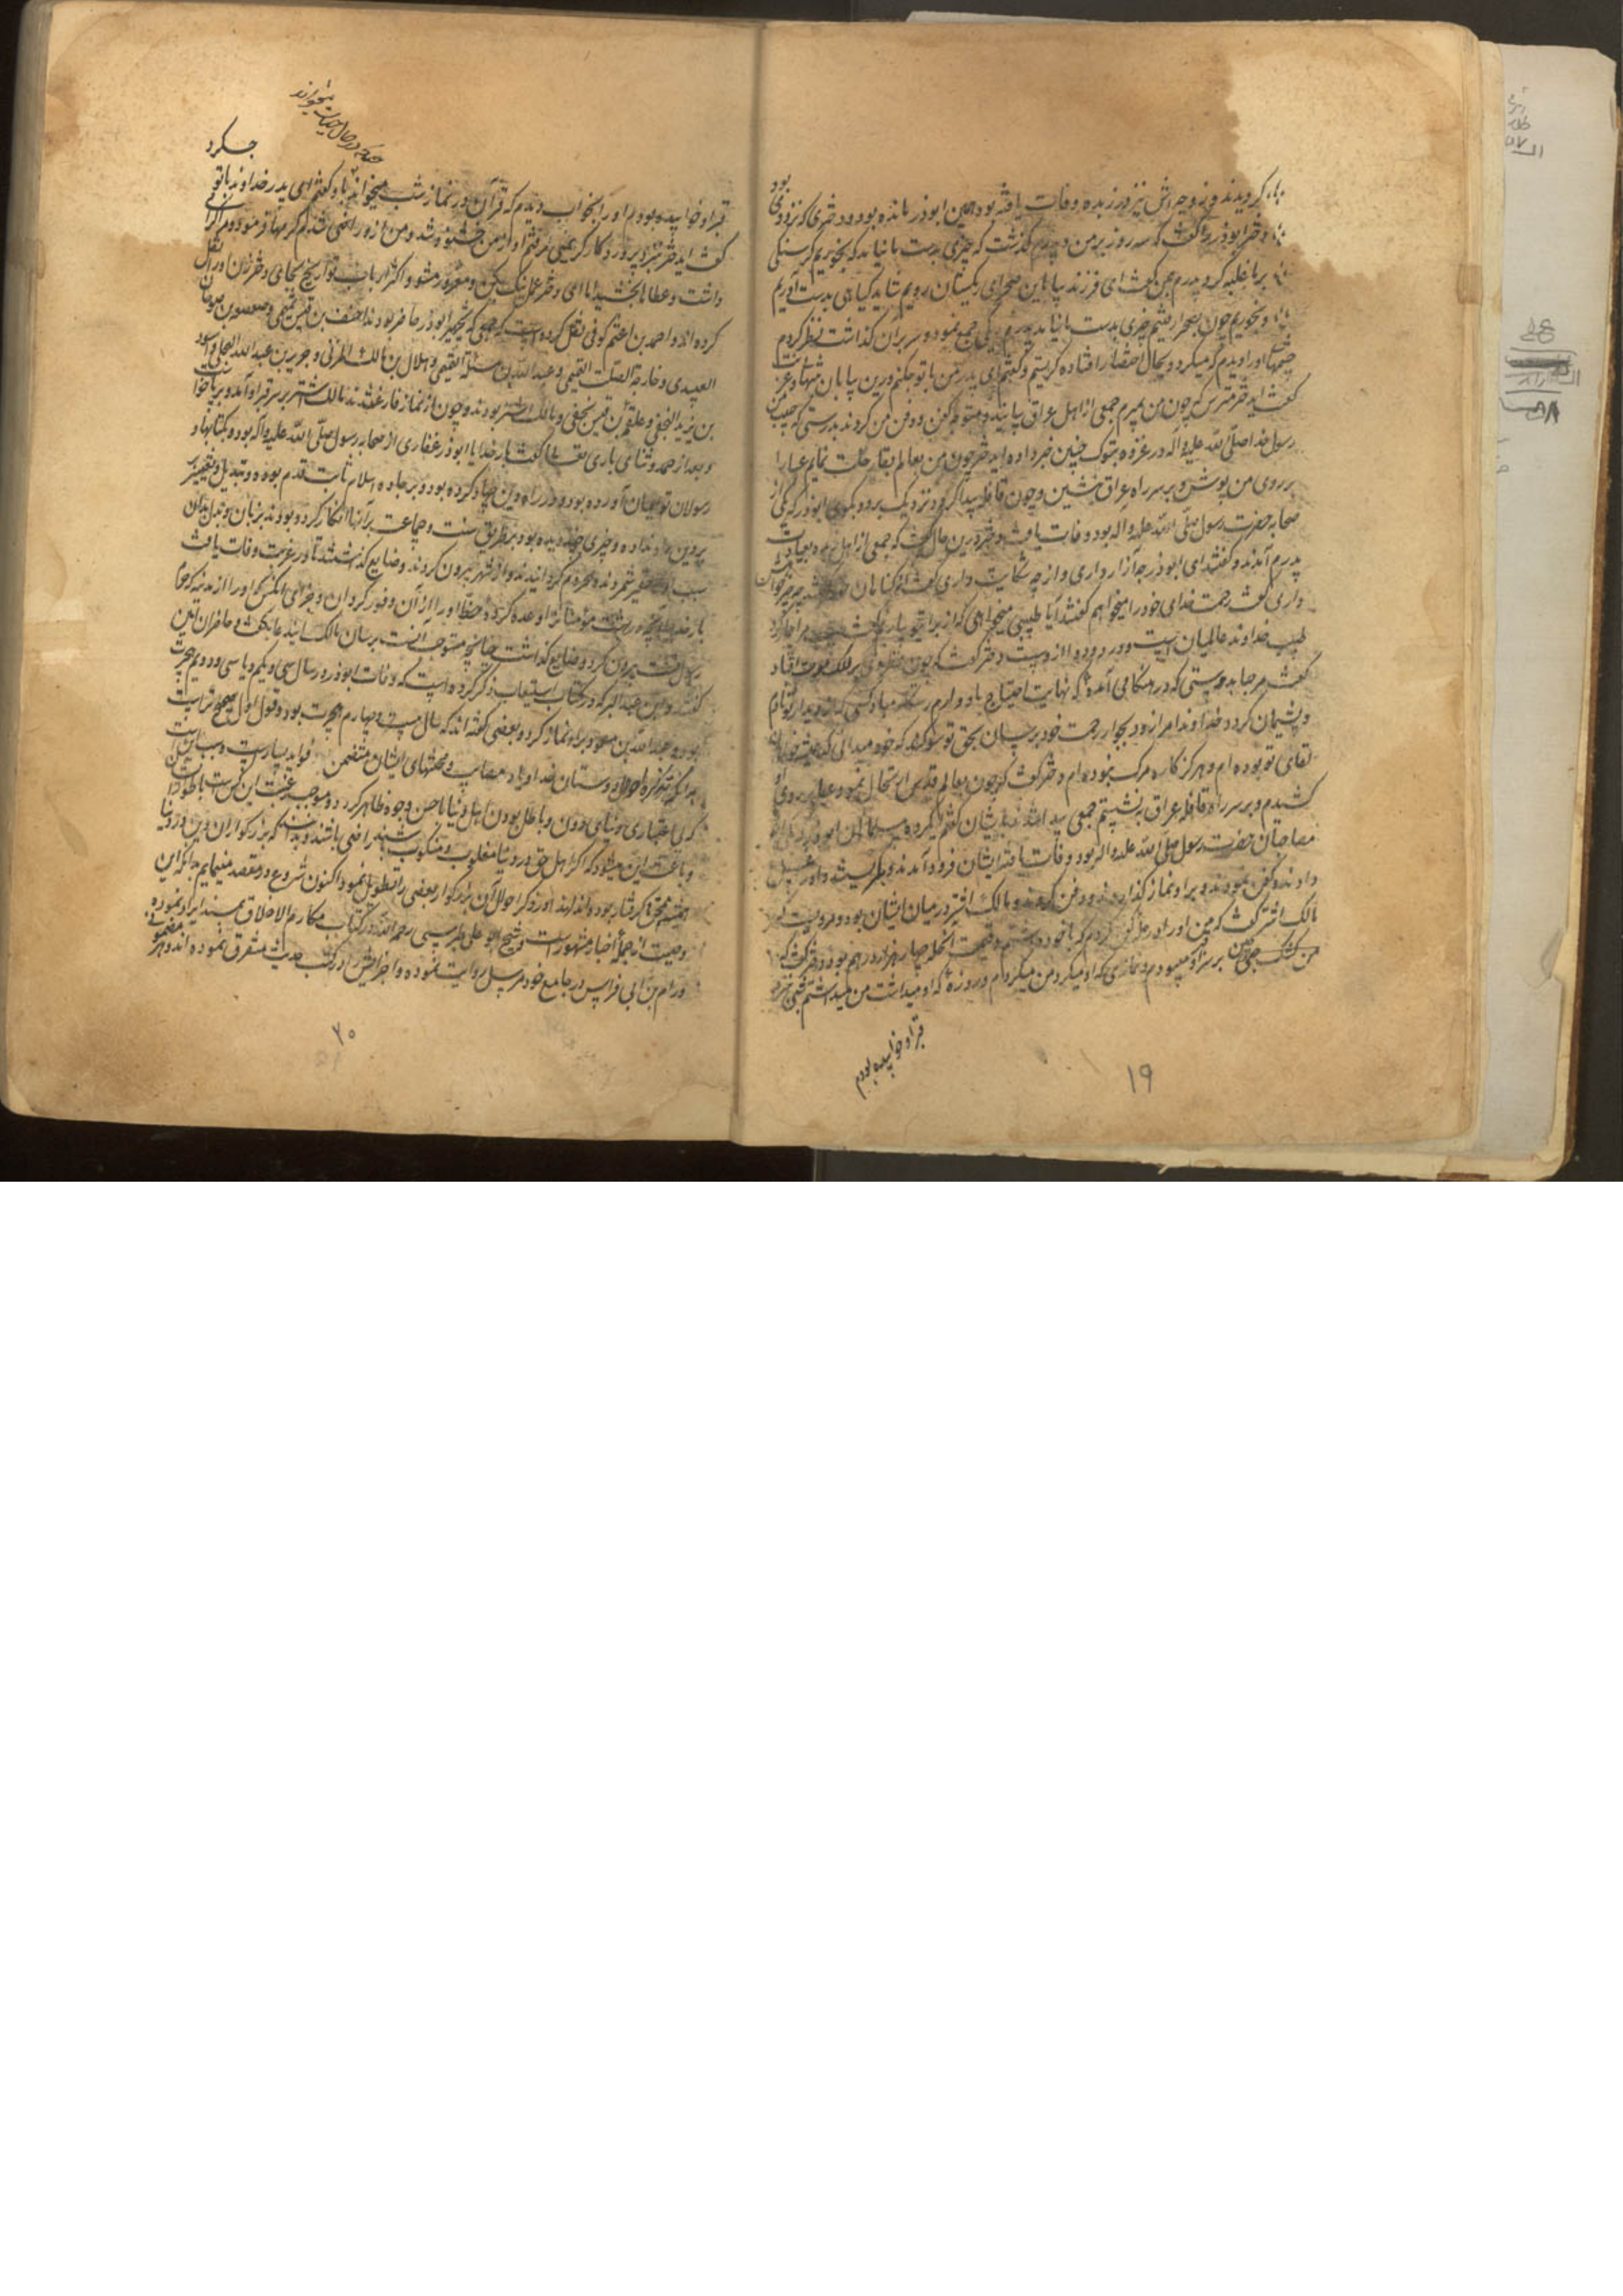 گرویدند و زوجه اش نیز در ربذه وفات یافته بود همین ابوذر مانده بود و دختری که نزد وی بود
دختر ابوذر گفت که سه روز بر من و پدرم گذشت که چیزی بدست ما نیامد که بخوریم گرسنگی
بر ما غلبه کرد پدرم بمن گفت ای فرزند بیا باین صحرای ریگستان رویم شاید گیاهی بدست آوریم
و بخوریم چون بصحرا رفتیم چیزی بدست ما نیامد پدرم ریگی جمع نمود و سر بران گذاشت نظر کردم
چشمهای او را دیدم که میگردد و بحال احتضار افتاده گریستم و گفتم ای پدر من با تو چکنم درین بیابان تنها و غربت
گفت ای دختر مترس که چون من بمیرم جمعی از اهل عراق بیایند و متوجه کفن و دفن من گردند بدرستی که حبیب من
رسول خدا صلی الله علیه و اله در غزوه تبوک چنین خبر داده ای دختر چون من بعالم بقا رحلت نمایم عبا را
بر روی من پوش و بر سر راه عراق بنشین و چون قافله پیدا گردد نزدیک برو و بگوی ابوذر که یکی از
صحابه حضرت رسول صلی الله علیه و آله بود وفات یافت دختر درین حال گفت که جمعی از اهل ربذه بعیادت
پدرم آمدند و گفتند ای ابوذر چه آزار داری و از چه شکایت داری گفت از گناهان خود گفتند چه چیز خواهش
داری گفت رحمت خدای خود را میخواهم گفتند آیا طبیبی میخواهی که از برای تو بیاریم گفت طبیب مرا بیمار کرد
طبیب خداوند عالمیان است و درد و دوا ازوست دختر گفت که چون نظر وی بر ملک موت افتاد
گفت مرحبا بدوستی که در هنگامی آمده که نهایت احتیاج باو دارم رستگار مباد کسی که از دیدار تو نادم
و پشیمان گردد خداوندا مرا زود بجوار رحمت خود برسان بحق تو سوگند که خود میدانی که همیشه خواهان
لقای تو بوده ام و هرگز کاره مرگ نبوده ام دختر گفت که چون بعالم قدس ارتحال نمود عبا بر روی او
کشیدم و بر سر راه قافله عراق بنشستم جمعی پیدا شدند بایشان گفتم ای گروه مسلمانان ابوذر که از
مصاحبان حضرت رسول صلی الله علیه و اله بود وفات یافته ایشان فرود آمدند و بگریستند و او را غسل
دادند و کفن نمودند و بر او نماز گذاردند و دفن کردند و مالک اشتر در میان ایشان بود و مرویست که
مالک اشتر گفت که من او را در حله کفن کردم که با خود داشتم و قیمت آنحله چهار هزار درهم بود و دختر گفت که
من بر سر قبر او میبودم و نمازی که او میکرد من میکردم و روزه که او میداشت من میداشتم شبی نزد
قبر او خوابیده بودم
۱۹
چنانکه در حال حیات میخواند
قبر او خوابیده بودم او را بخواب دیدم که قرآن در نماز شب میخواند باو گفتم ای پدر خداوند با تو چه کرد
گفت ای دختر نزد پروردگار کریمی رفتم او از من خشنود شد و من ازو راضی شدم کرمها فرمود و مرا گرامی
داشت و عطاها بخشید اما ای دختر عمل نیک بکن و مغرور مشو و اکثر ارباب تواریخ بجای دختر زن او را نقل
کرده اند و احمد بن اعثم کوفی نقل کرده است که جمعی که بتجهیز ابوذر حاضر بودند احنف بن قیس تمیمی و صعصعه بن صوحان
العبدی و خارجة الصلت التمیمی و عبد الله بن مسلمة التمیمی و هلال بن مالک المزنی و جریر بن عبد الله البجلی و اسود
بن یزید النخعی و علقمه بن قیس نخعی و مالک اشتر بودند و چون از نماز فارغ شدند مالک اشتر بر سر قبر او آمد و برپا خواست
و بعد از حمد و ثنای باری تعالی گفت بار خدایا ابوذر غفاری از صحابه رسول صلی الله علیه و آله بود و بکتابها و
رسولان تو ایمان آورده بود و در راه دین جهاد کرده بود و بر جاده اسلام ثابت قدم بوده و تبدیل و تغییر
بدین راه نداده و چیزی چند دیده بود بر طریق سنت و جماعت برآنها انکار کرده بود بزبان و بدل بدان
سبب او را حقیر شمردند و محروم گردانیدند و از شهر بیرون کردند و ضایع گذاشتند تا در غربت وفات یافت
بار خدایا آنچه در بهشت مؤمنانرا وعده کرده حظ او را از آن وفور گردان و جزای آنکس که او را از مدینه که حرم
رسول تست بیرون کرد و ضایع گذاشت چنانچه مستوجب آنست برسان مالک این دعا بگفت و حاضران آمین
گفتند و ابن عبد البر که در کتاب استیعاب ذکر کرده است که وفات ابوذر در سال سی و یکم و یا سی و دویم هجرت
بود و عبد الله بن مسعود بر او نماز کرد و بعضی گفته اند که سال بیست و چهارم هجرت بود و قول اول صحیح تر است
بدانکه تذکره احوال دوستان خدا و یاد مصایب و محنتهای ایشان متضمن فواید بسیارست و سبب اینست
که بی اعتباری دنیای دون و باطل بودن اهل دنیا باحسن وجوه ظاهر گردد و موجب رغبت این کس بآخرت
و باعث این میشود که اگر اهل حق در دنیا مغلوب و منکوب باشند راضی باشند و بدانند که بزرگواران دین در دنیا
همیشه بمحن گرفتار بوده اند لهذا در ذکر احوال آن بزرگوار بعضی را تطویل نمود اکنون شروع در مقصد مینمایم بدانکه این
وصیت از جمله اخبار مشهوره است و شیخ ابو علی طبرسی رحمه الله در کتاب مکارم الاخلاق بسند ایراد نموده
ورام بن ابی فراس در جامع خود مرسل روایت نموده و اجزایش در کتب حدیث متفرق نموده اند و هر مضمونی
۲۰